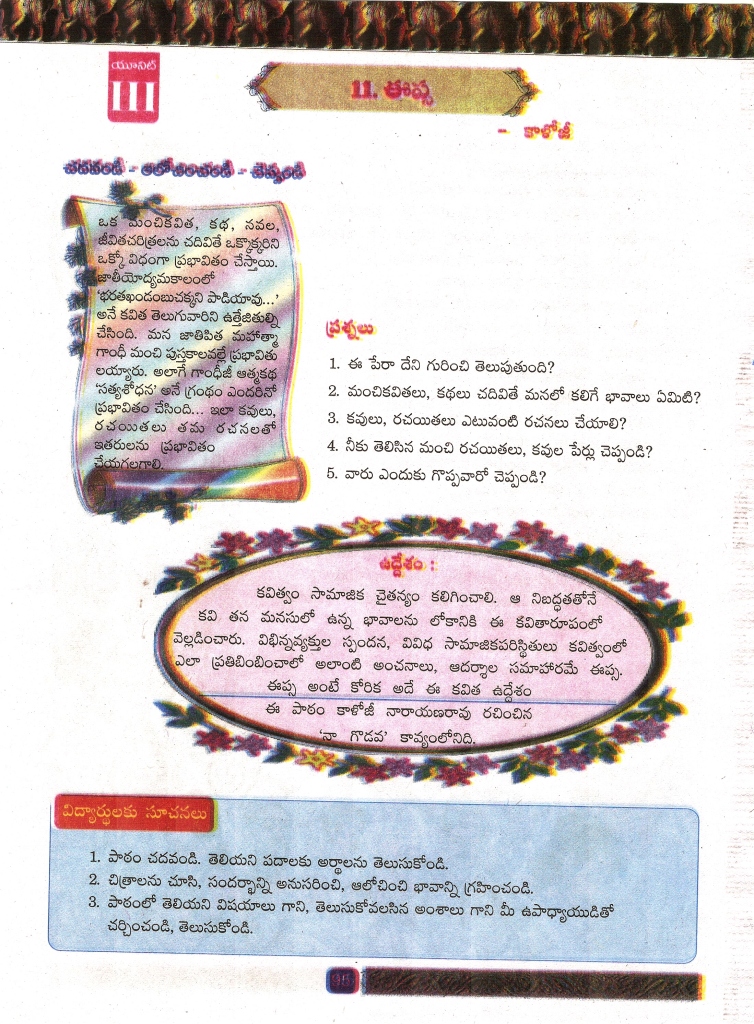 యూనిట్
III
11. ఈప్స
- కాళోజీ
చదవండి - ఆలోచించండి - చెప్పండి
ఒక మంచికవిత, కథ, నవల,
జీవితచరిత్రలను చదివితే ఒక్కొక్కరిని
ఒక్కో విధంగా ప్రభావితం చేస్తాయి.
జాతీయోద్యమకాలంలో
'భరతఖండంబుచక్కని పాడియావు...'
అనే కవిత తెలుగువారిని ఉత్తేజితుల్ని
చేసింది. మన జాతిపిత మహాత్మా
గాంధీ మంచి పుస్తకాలవల్లే ప్రభావితు
లయ్యారు. అలాగే గాంధీజీ ఆత్మకథ
'సత్యశోధన' అనే గ్రంథం ఎందరినో
ప్రభావితం చేసింది... ఇలా కవులు,
రచయితలు తమ రచనలతో
ఇతరులను ప్రభావితం
చేయగలగాలి.
ప్రశ్నలు
1. ఈ పేరా దేని గురించి తెలుపుతుంది?
2. మంచికవితలు, కథలు చదివితే మనలో కలిగే భావాలు ఏమిటి?
3. కవులు, రచయితలు ఎటువంటి రచనలు చేయాలి?
4. నీకు తెలిసిన మంచి రచయితలు, కవుల పేర్లు చెప్పండి?
5. వారు ఎందుకు గొప్పవారో చెప్పండి?
ఉద్దేశం :
కవిత్వం సామాజిక చైతన్యం కలిగించాలి. ఆ నిబద్ధతతోనే
కవి తన మనసులో ఉన్న భావాలను లోకానికి ఈ కవితారూపంలో
వెల్లడించారు. విభిన్నవ్యక్తుల స్పందన, వివిధ సామాజికపరిస్థితులు కవిత్వంలో
ఎలా ప్రతిబింబించాలో అలాంటి అంచనాలు, ఆదర్శాల సమాహారమే ఈప్స.
ఈప్స అంటే కోరిక అదే ఈ కవిత ఉద్దేశం
ఈ పాఠం కాళోజీ నారాయణరావు రచించిన
'నా గొడవ' కావ్యంలోనిది.
విద్యార్థులకు సూచనలు
1. పాఠం చదవండి. తెలియని పదాలకు అర్థాలను తెలుసుకోండి.
2. చిత్రాలను చూసి, సందర్భాన్ని అనుసరించి, ఆలోచించి భావాన్ని గ్రహించండి.
3. పాఠంలో తెలియని విషయాలు గాని, తెలుసుకోవలసిన అంశాలు గాని మీ ఉపాధ్యాయుడితో
చర్చించండి, తెలుసుకోండి.